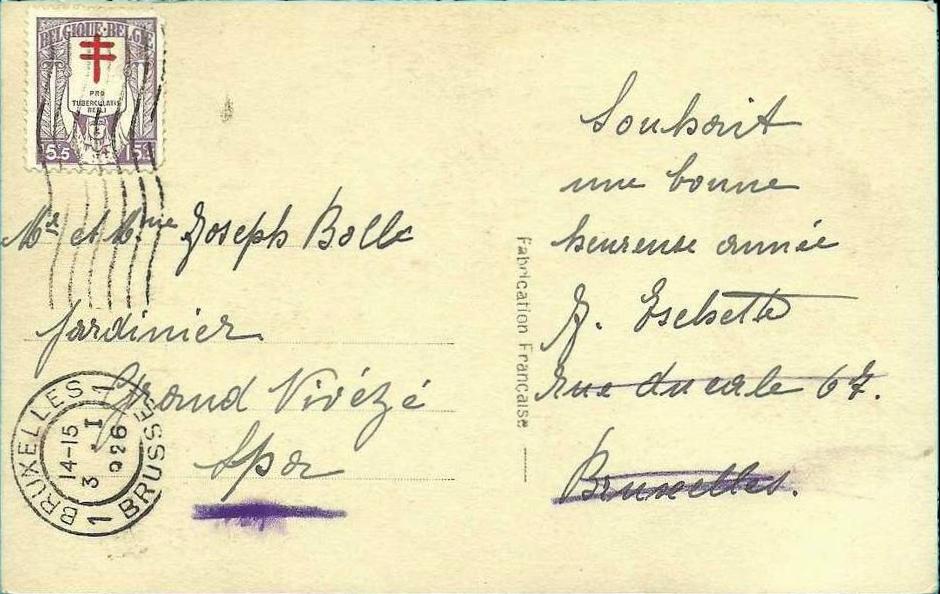 BELGIQUE-BELGIË
PRO
TUBERCULATIS
BELLI
Mr et Mme Joseph Bolle
Jardinier
Grand Vivézé
Spa
BRUXELLES 1
14-15
3 . I
1926
BRUSSEL 1
Fabrication Française
Souhait
une bonne
heureuse année
J.
rue ducale 67.
Bruxelles.